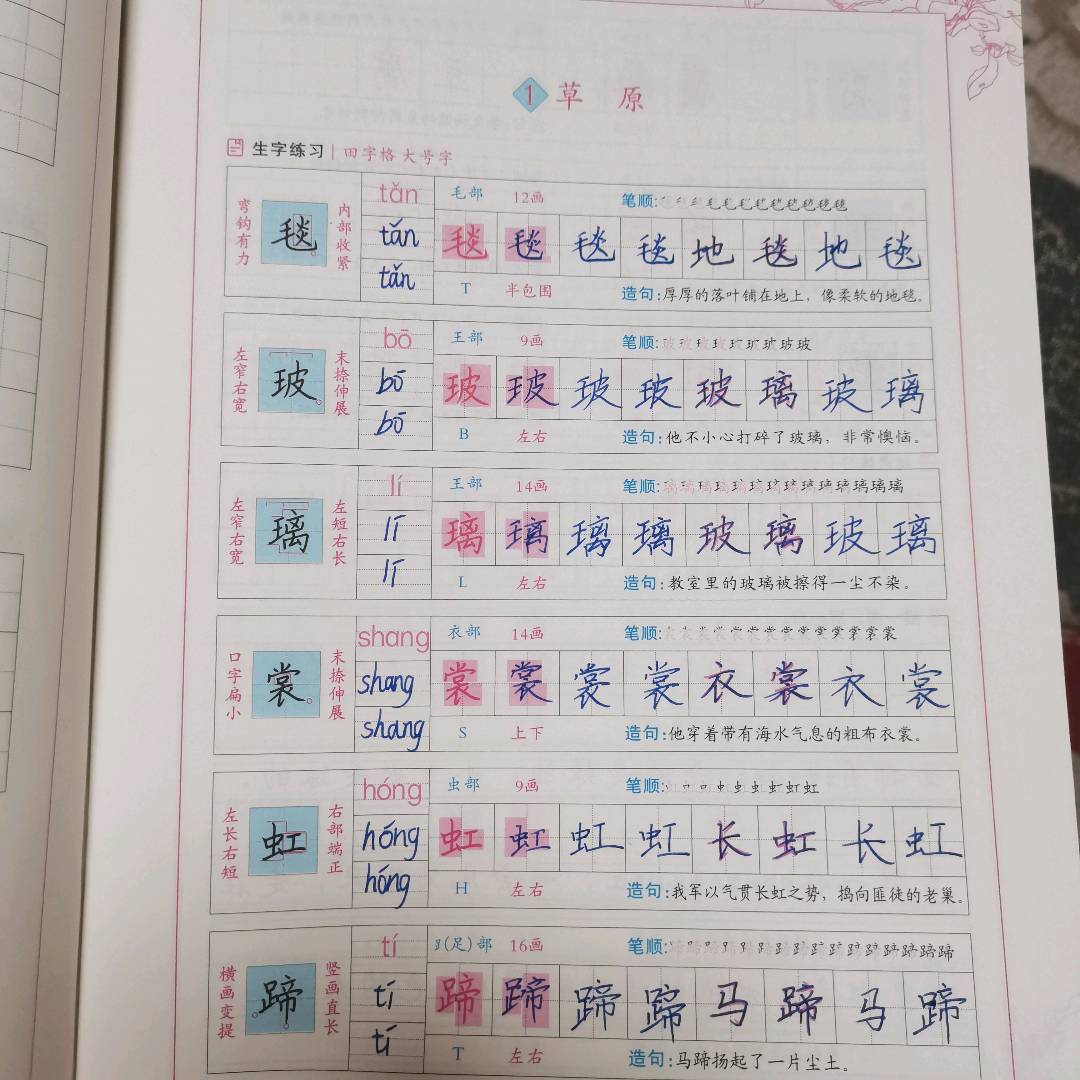 1 草 原
生字练习 | 田字格 大号字
弯钩有力 毯 内部收紧
tǎn 毛部 12画 笔顺:
tǎn 毯 毯 毯 毯 地 毯 地 毯
tǎn T 半包围 造句:厚厚的落叶铺在地上，像柔软的地毯。
左窄右宽 玻 末捺伸展
bō 王部 9画 笔顺:
bō 玻 玻 玻 玻 玻 璃 玻 璃
bō B 左右 造句:他不小心打碎了玻璃，非常懊恼。
左窄右宽 璃 左短右长
lí 王部 14画 笔顺:
lí 璃 璃 璃 璃 玻 璃 玻 璃
lí L 左右 造句:教室里的玻璃被擦得一尘不染。
口字扁小 裳 末捺伸展
shang 衣部 14画 笔顺:
shang 裳 裳 裳 裳 衣 裳 衣 裳
shang S 上下 造句:他穿着带有海水气息的粗布衣裳。
左长右短 虹 右部端正
hóng 虫部 9画 笔顺:
hóng 虹 虹 虹 虹 长 虹 长 虹
hóng H 左右 造句:我军以气贯长虹之势，捣向匪徒的老巢。
横画变提 蹄 竖画直长
tí 𧾷(足)部 16画 笔顺:
tí 蹄 蹄 蹄 蹄 马 蹄 马 蹄
tí T 左右 造句:马蹄扬起了一片尘土。